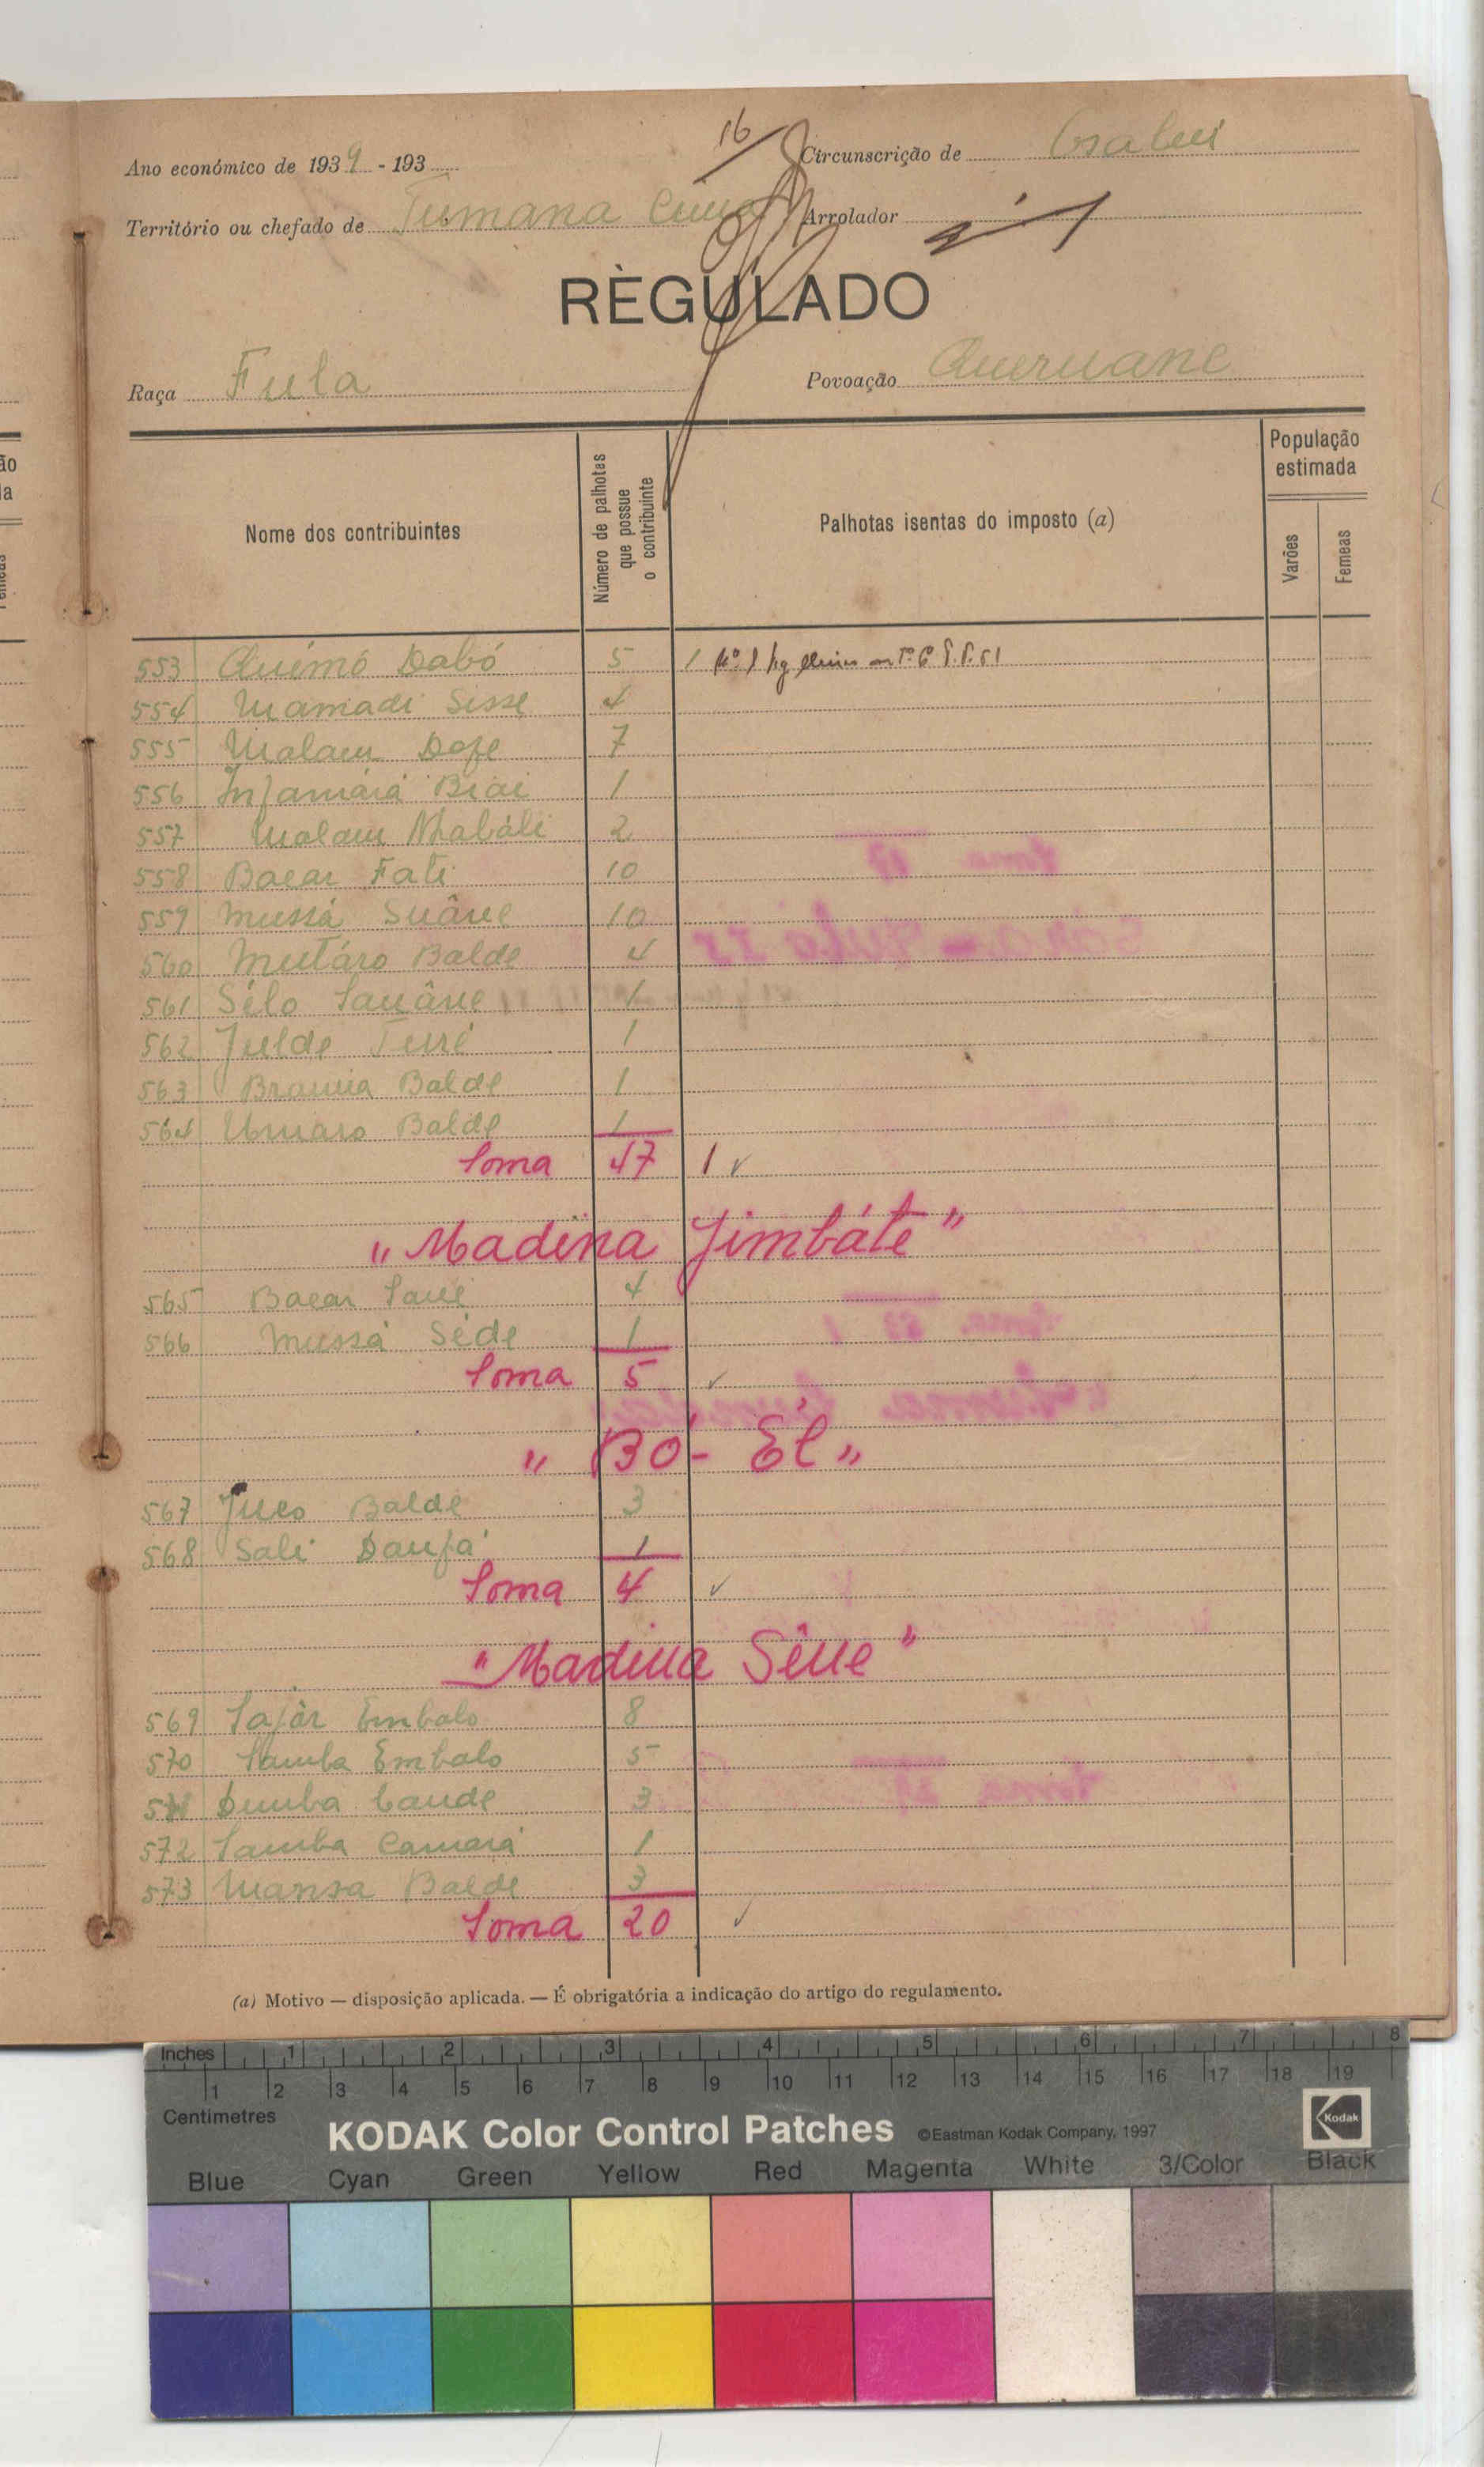 16
Ano económico de 1939 - 193
Circunscrição de Gabú
Território ou chefado de Tumana Cima
Arrolador
RÈGULADO
Raça Fula
Povoação Queruane
Nome dos contribuintes
Número de palhotas que possue o contribuinte
Palhotas isentas do imposto (a)
População estimada
Varões
Femeas
553 Quémó Dabó 5 1
554 Mamadi Sisse 4
555 Malam Dafe 7
556 Infamará Biai 1
557 Malam Nhabáli 2
558 Bacar Fati 10
559 Mussá Suâne 10
560 Mutáro Balde 4
561 Sélo Sauâne 1
562 Julde Turé 1
563 Brama Balde 1
564 Umaro Balde 1
Soma 47 1
"Madina Jimbáte"
565 Bacar Sané 4
566 Mussá Séde 1
Soma 5
"Bó-El"
567 Juco Balde 3
568 Sali Danfá 1
Soma 4
"Madina Sêne"
569 Safàr Embalo 8
570 Samba Embalo 5
571 Demba Cande 3
572 Samba Camará 1
573 Mansa Balde 3
Soma 20
(a) Motivo — disposição aplicada. — É obrigatória a indicação do artigo do regulamento.
Inches 1 2 3 4 5 6 7 8
1 2 3 4 5 6 7 8 9 10 11 12 13 14 15 16 17 18 19
Centimetres
KODAK Color Control Patches ©Eastman Kodak Company, 1997
Kodak
Blue Cyan Green Yellow Red Magenta White 3/Color Black